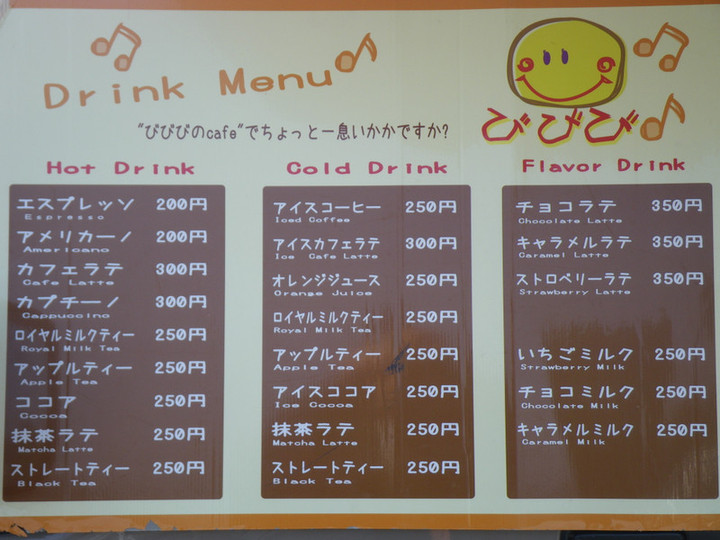 Drink Menu
びびび
"びびびのcafe"でちょっと一息いかかですか?
Hot Drink
エスプレッソ 200円
Espresso
アメリカーノ 200円
Americano
カフェラテ 300円
Cafe Latte
カプチーノ 300円
Cappuocino
ロイヤルミルクティー 250円
Royal Milk Tea
アップルティー 250円
Apple Tea
ココア 250円
Cocoa
抹茶ラテ 250円
Matcha Latte
ストレートティー 250円
Black Tea
Cold Drink
アイスコーヒー 250円
Iced Coffee
アイスカフェラテ 300円
Ice Cafe Latte
オレンジジュース 250円
Orange Juice
ロイヤルミルクティー 250円
Royal Milk Tea
アップルティー 250円
Apple Tea
アイスココア 250円
Ice Cocoa
抹茶ラテ 250円
Matcha Latte
ストレートティー 250円
Black Tea
Flavor Drink
チョコラテ 350円
Chocolate Latte
キャラメルラテ 350円
Caramel Latte
ストロベリーラテ 350円
Strawberry Latte
いちごミルク 250円
Strawberry Milk
チョコミルク 250円
Chocolate Milk
キャラメルミルク 250円
Caramel Milk